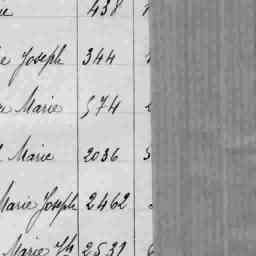 438
Joseph 344
Marie 574
Marie 2036
Marie Joseph 2462
Marie Jh 2531